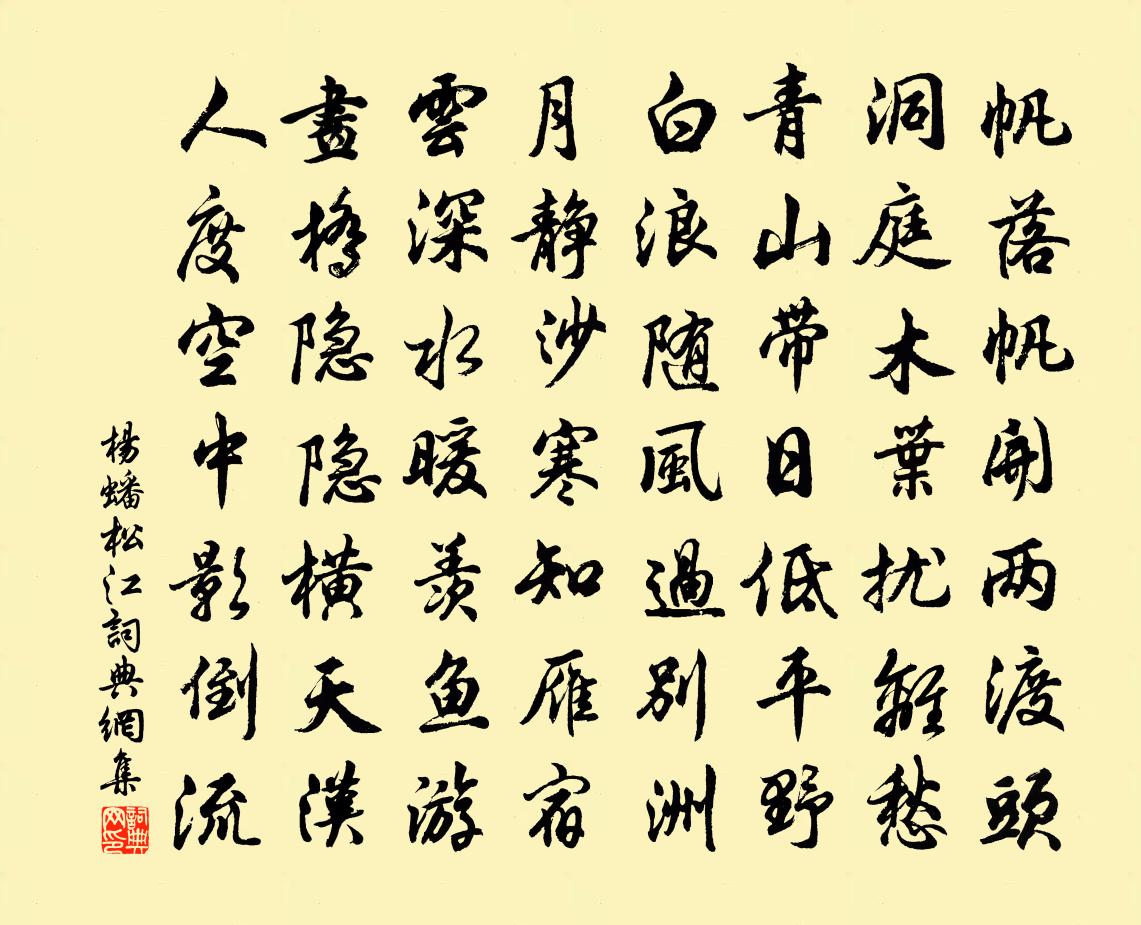 帆落帆開两渡頭
洞庭木葉扰離愁
青山带日低平野
白浪随風過别洲
月静沙寒知雁宿
雲深水暖羡鱼游
畫橋隐隐横天漢
人度空中影倒流
楊蟠松江詞典網集
詞典网印